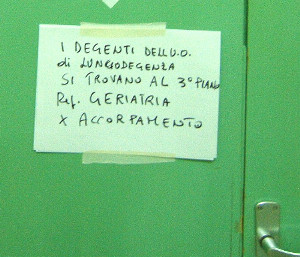 I DEGENTI DELL'U.O.
di LUNGODEGENZA
SI TROVANO AL 3° PIANO
Rep. GERIATRIA
X ACCORPAMENTO